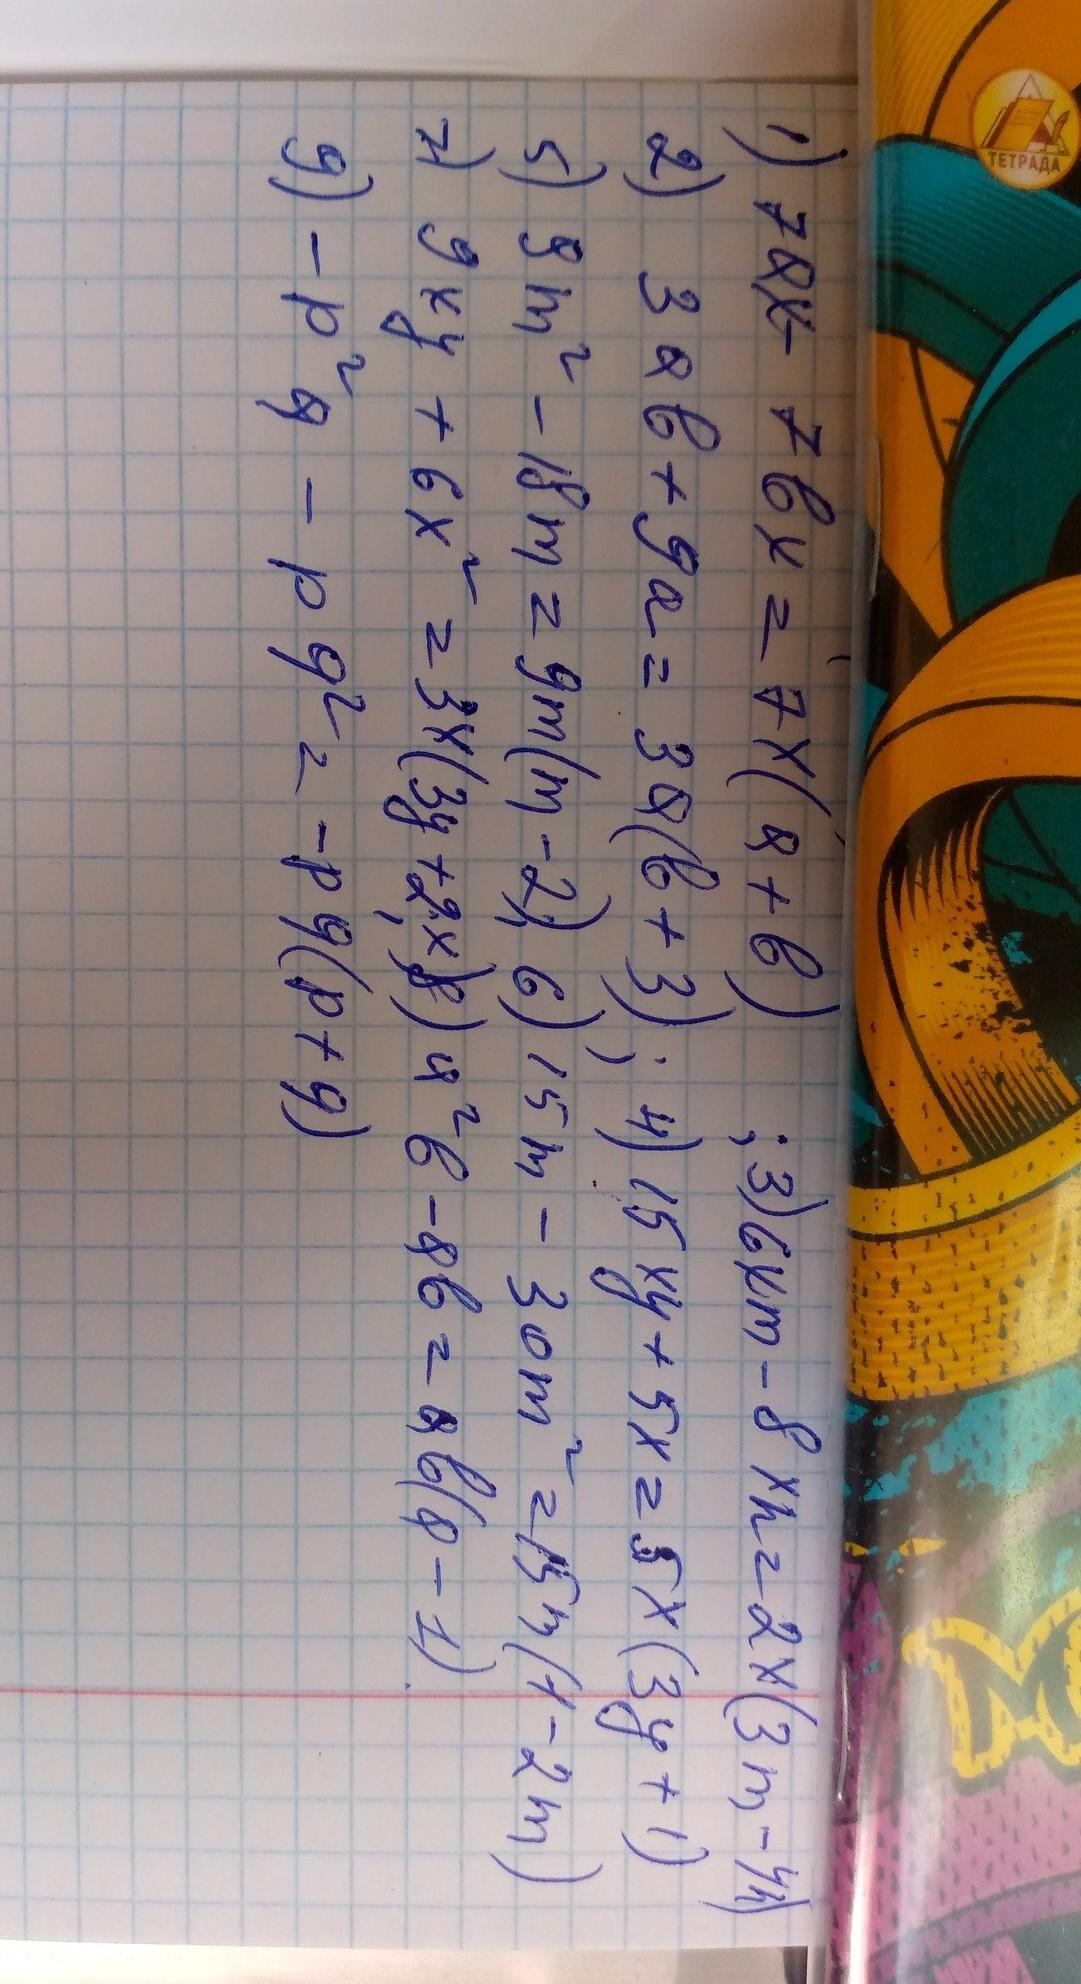 ТЕТРАДА
1) 7ax - 7bx = 7x(a+b) ; 3) 6xm - 8xn = 2x(3m - 4n)
2) 3ab + 9a = 3a(b+3) ; 4) 15xy + 5x = 5x(3y+1)
5) 9m² - 18m = 9m(m-2); 6) 15m - 30m² = 15m(1-2m)
7) 9xy + 6x² = 3x(3y+2x); 8) a²b - ab = ab(a-1).
9) -p²q - pq² = -pq(p+q)